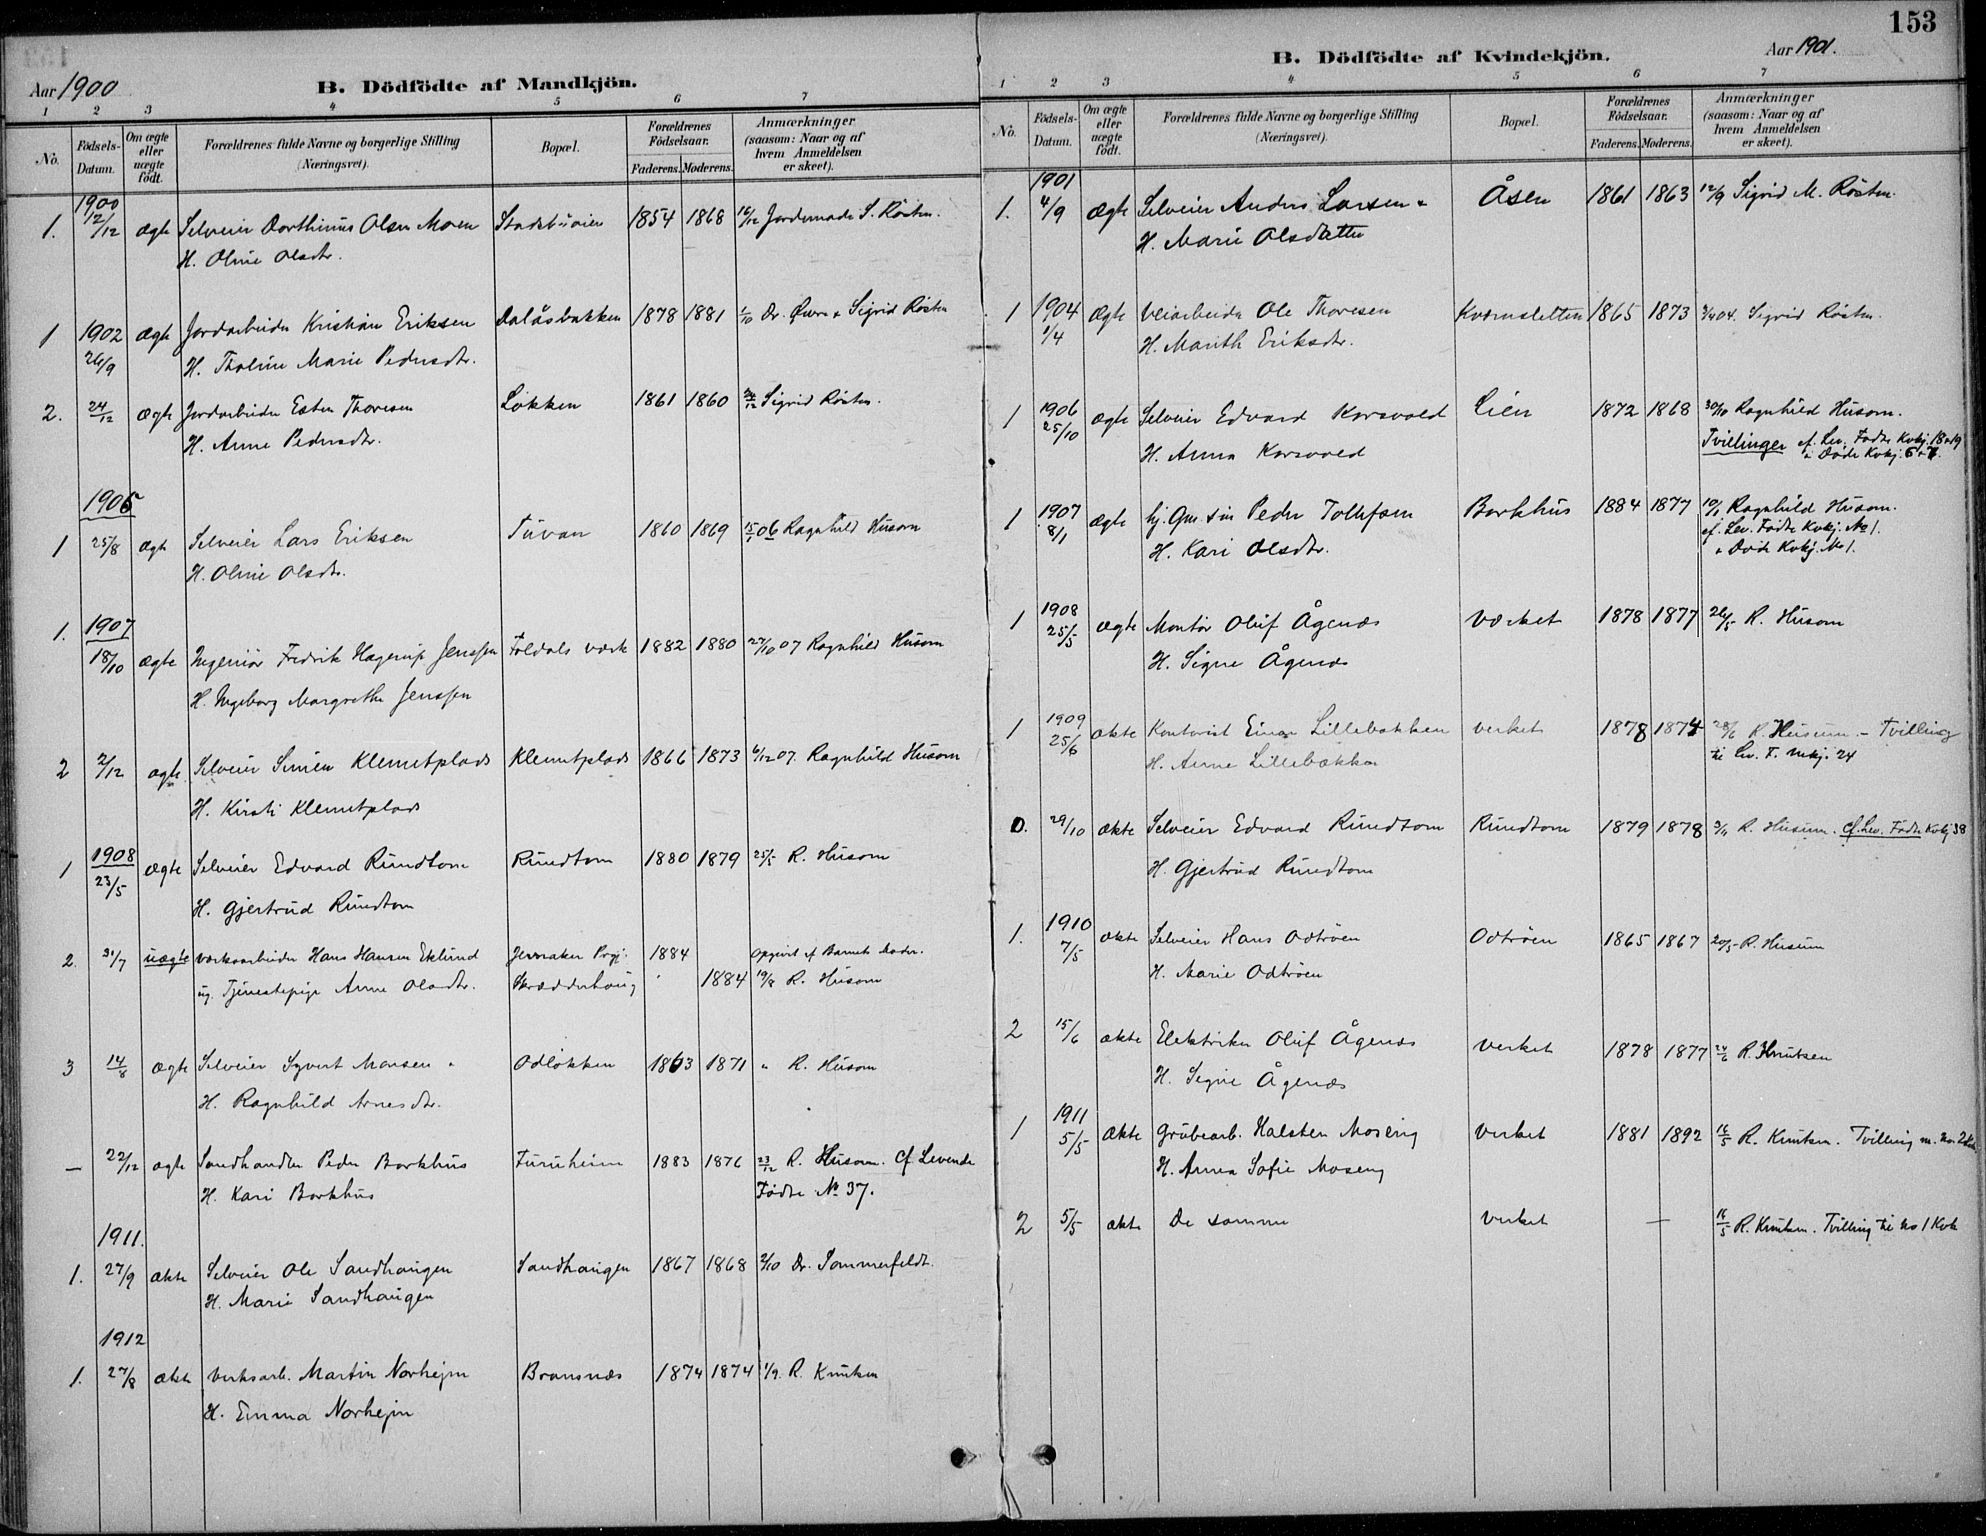 153
Aar 1900
B. Dödfödte af Mandkjön.
1 2 3 4 5 6 7
No. Födsels-Datum. Om ægte eller uægte födt. Forældrenes fulde Navne og borgerlige Stilling (Næringsvei). Bopæl. Forældrenes Födselsaar. Faderens. Moderens. Anmærkninger (saasom: Naar og af hvem Anmeldelsen er skeet).
1900
1. 12/12 ægte Selveier Dorthinus Olsen Moen 1854 1868 16/12 Jordemode S. Røsten.
H. Oline Olsdtr.
1 1902 ægte Jordarbeider Kristian Eriksen Dalåsbakken 1878 1881 1/10 Dr. Øvre & Sigrid Røsten
26/9 H. Thaline Marie Pedersdtr.
2. 24/12 ægte Jordarbeider Esten Thoresen Løkken 1861 1860 Sigrid Røsten.
H. Anne Pedersdtr.
1905
1 25/8 ægte Selveier Lars Eriksen Tuvan 1860 1869 15/1 06 Ragnhild Husom
H. Oline Olsdtr.
1. 1907
18/10 ægte Ingeniør Fredrik Hagerup Jenssen Foldals værk 1882 1880 27/10 07 Ragnhild Husom
H. Ingeborg Margrethe Jenssen
2 2/12 ægte Selveier Simen Klemetplads Klemetplads 1866 1873 6/12 07. Ragnhild Husom
H. Kirsti Klemetplads
1908
1 23/5 ægte Selveier Edvard Rundtom Rundtom 1880 1879 25/5 R. Husom
H. Gjertrud Rundtom
2. 31/7 uægte værksarbeider Hans Hansen Eklund 1884 Opgivet af Barnets Moder.
ug. Tjenestepige Anne Olsdtr. Skrædderhaug 1884 19/8 R. Husom
3 14/8 ægte Selveier Syvert Monsen Odløkken 1863 1871 " R. Husom
H. Ragnhild Arnesdtr.
— 22/12 ægte Landhandler Peder Borkhus Furuheim 1883 1876 23/12 R. Husom. Cf Levende
H. Kari Borkhus Fødte No 37.
1911.
1. 27/9 ækte Selveier Ole Sandhaugen Sandhaugen 1867 1868 2/10 Dr. Sommerfeldt.
H. Marie Sandhaugen
1912
1. 27/8 ækte Verksarb. Martin Norhejm Bransnæs 1874 1874 1/9. R. Knutsen
H. Emma Norhejm
Aar 1901.
B. Dödfödte af Kvindekjön.
1 2 3 4 5 6 7
No. Födsels-Datum. Om ægte eller uægte födt. Forældrenes fulde Navne og borgerlige Stilling (Næringsvei). Bopæl. Forældrenes Födselsaar. Faderens. Moderens. Anmærkninger (saasom: Naar og af hvem Anmeldelsen er skeet).
1901
1. 4/9 ægte Selveier Anders Larsen & Åsen 1861 1863 12/9 Sigrid M. Røsten.
H. Marie Olsdatter
1 1904 ægte Veiarbeider Ole Thoresen Kværnsletten 1865 1873 Sigrid Røsten.
1/4 H. Marith Eriksdtr.
1 1906 ægte Selveier Edvard Korsvold Lien 1872 1868 30/10 Ragnhild Husom.
25/10 H. Anna Korsvold Tvillinger cf. Lev. Fødte Kvkj. 18 & 19
& Døde Kvkj. 6 & 7.
1 1907 ægte Peder Tollefsen Borkhus 1884 1877 10/1 Ragnhild Husom.
8/1 H. Kari Olsdtr. cf. Lev. Fødte Kvkj. No 1.
& Døde Kvkj. No 1.
1 1908
25/5 ægte Montør Oluf Ågenæs Værket 1878 1877 26/5 R. Husom
H. Signe Ågenæs
1 1909
25/6 ækte Kontorist Einar Lillebakken verket 1878 1874 28/6 R. Husum. - Tvilling
H. Anne Lillebakken til Lev. F. Mkj. 24
0. 29/10 ækte Selveier Edvard Rundtom Rundtom 1879 1878 R. Husum. Cf. Lev. Fødte Kvkj 38
H. Gjertrud Rundtom
1. 1910
7/5 ækte Selveier Hans Odtrøen Odtrøen 1865 1867 20/5 R. Husum
H. Marie Odtrøen
2 15/6 ækte Elektriker Oluf Ågenæs Verket 1878 1877 24/6 R. Knutsen
H. Signe Ågenæs
1 1911
5/5 ækte Grubearb. Halsten Moseng Verket 1881 1892 16/5 R. Knutsen. Tvilling m. No. 2
H. Anna Sofie Moseng
2 5/5 ækte De samme verket — 16/5 R. Knutsen. Tvilling til No 1 Kvk